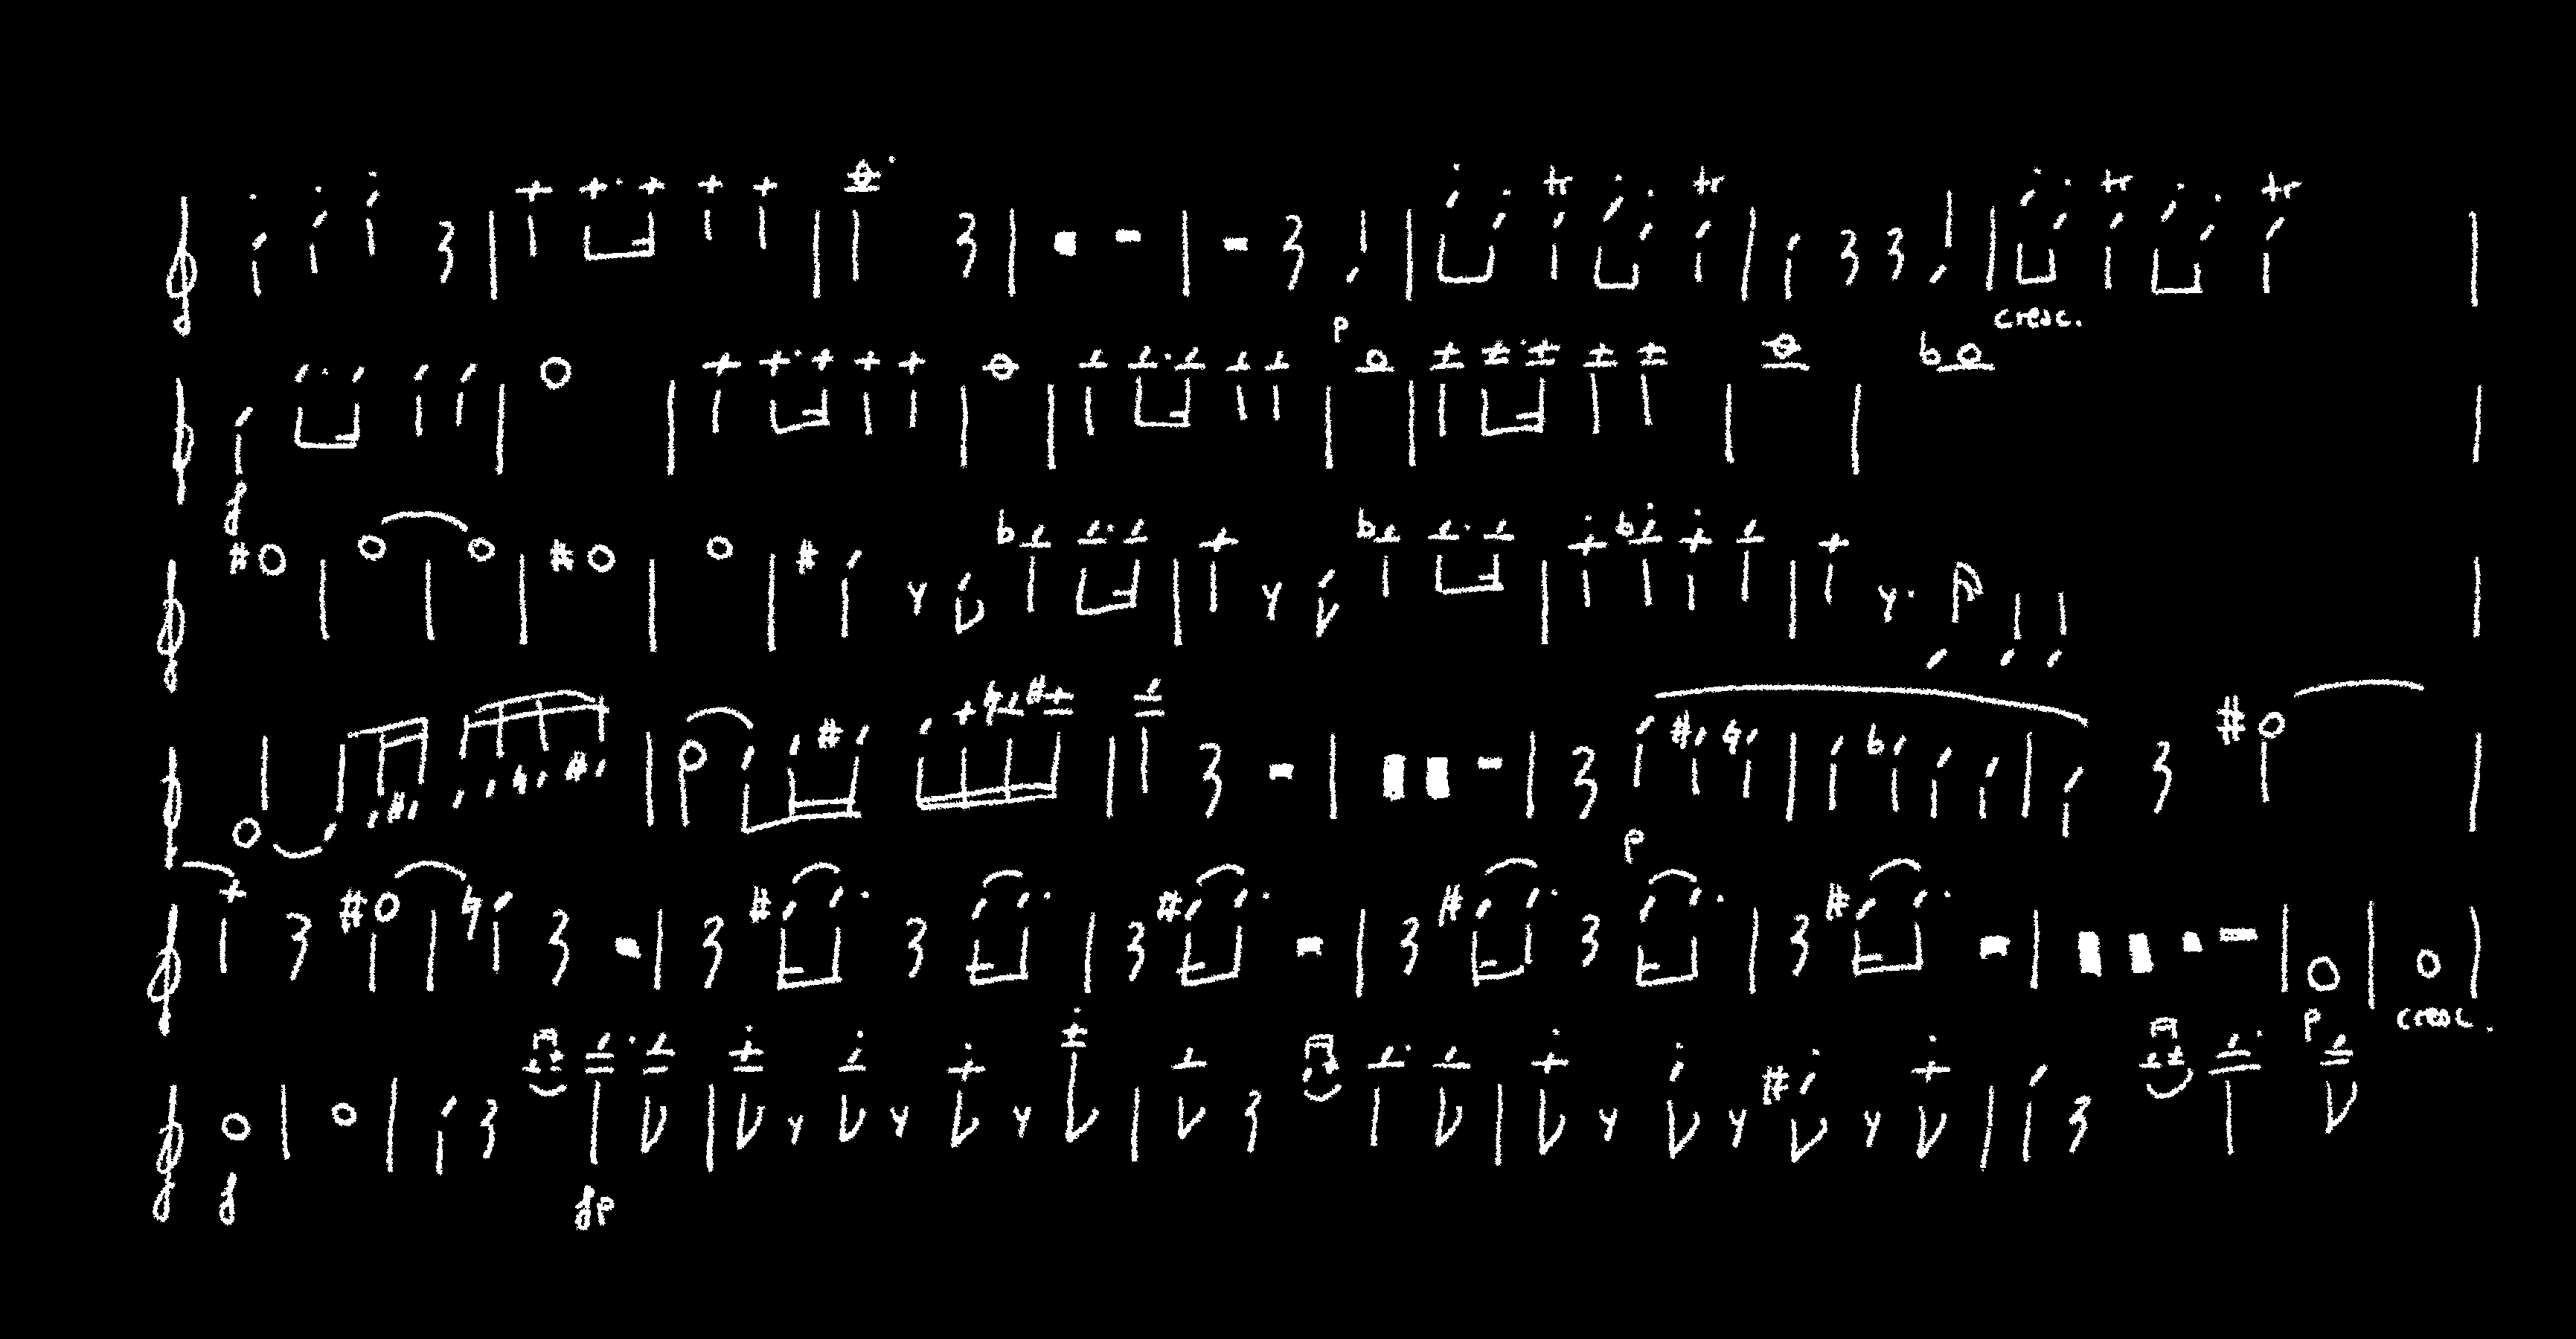 tr tr tr tr
p cresc.
f
p
p cresc.
f fp